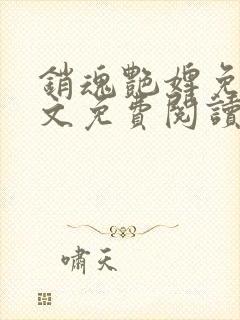 銷魂艷婢免
文免費閱讀
嘯天